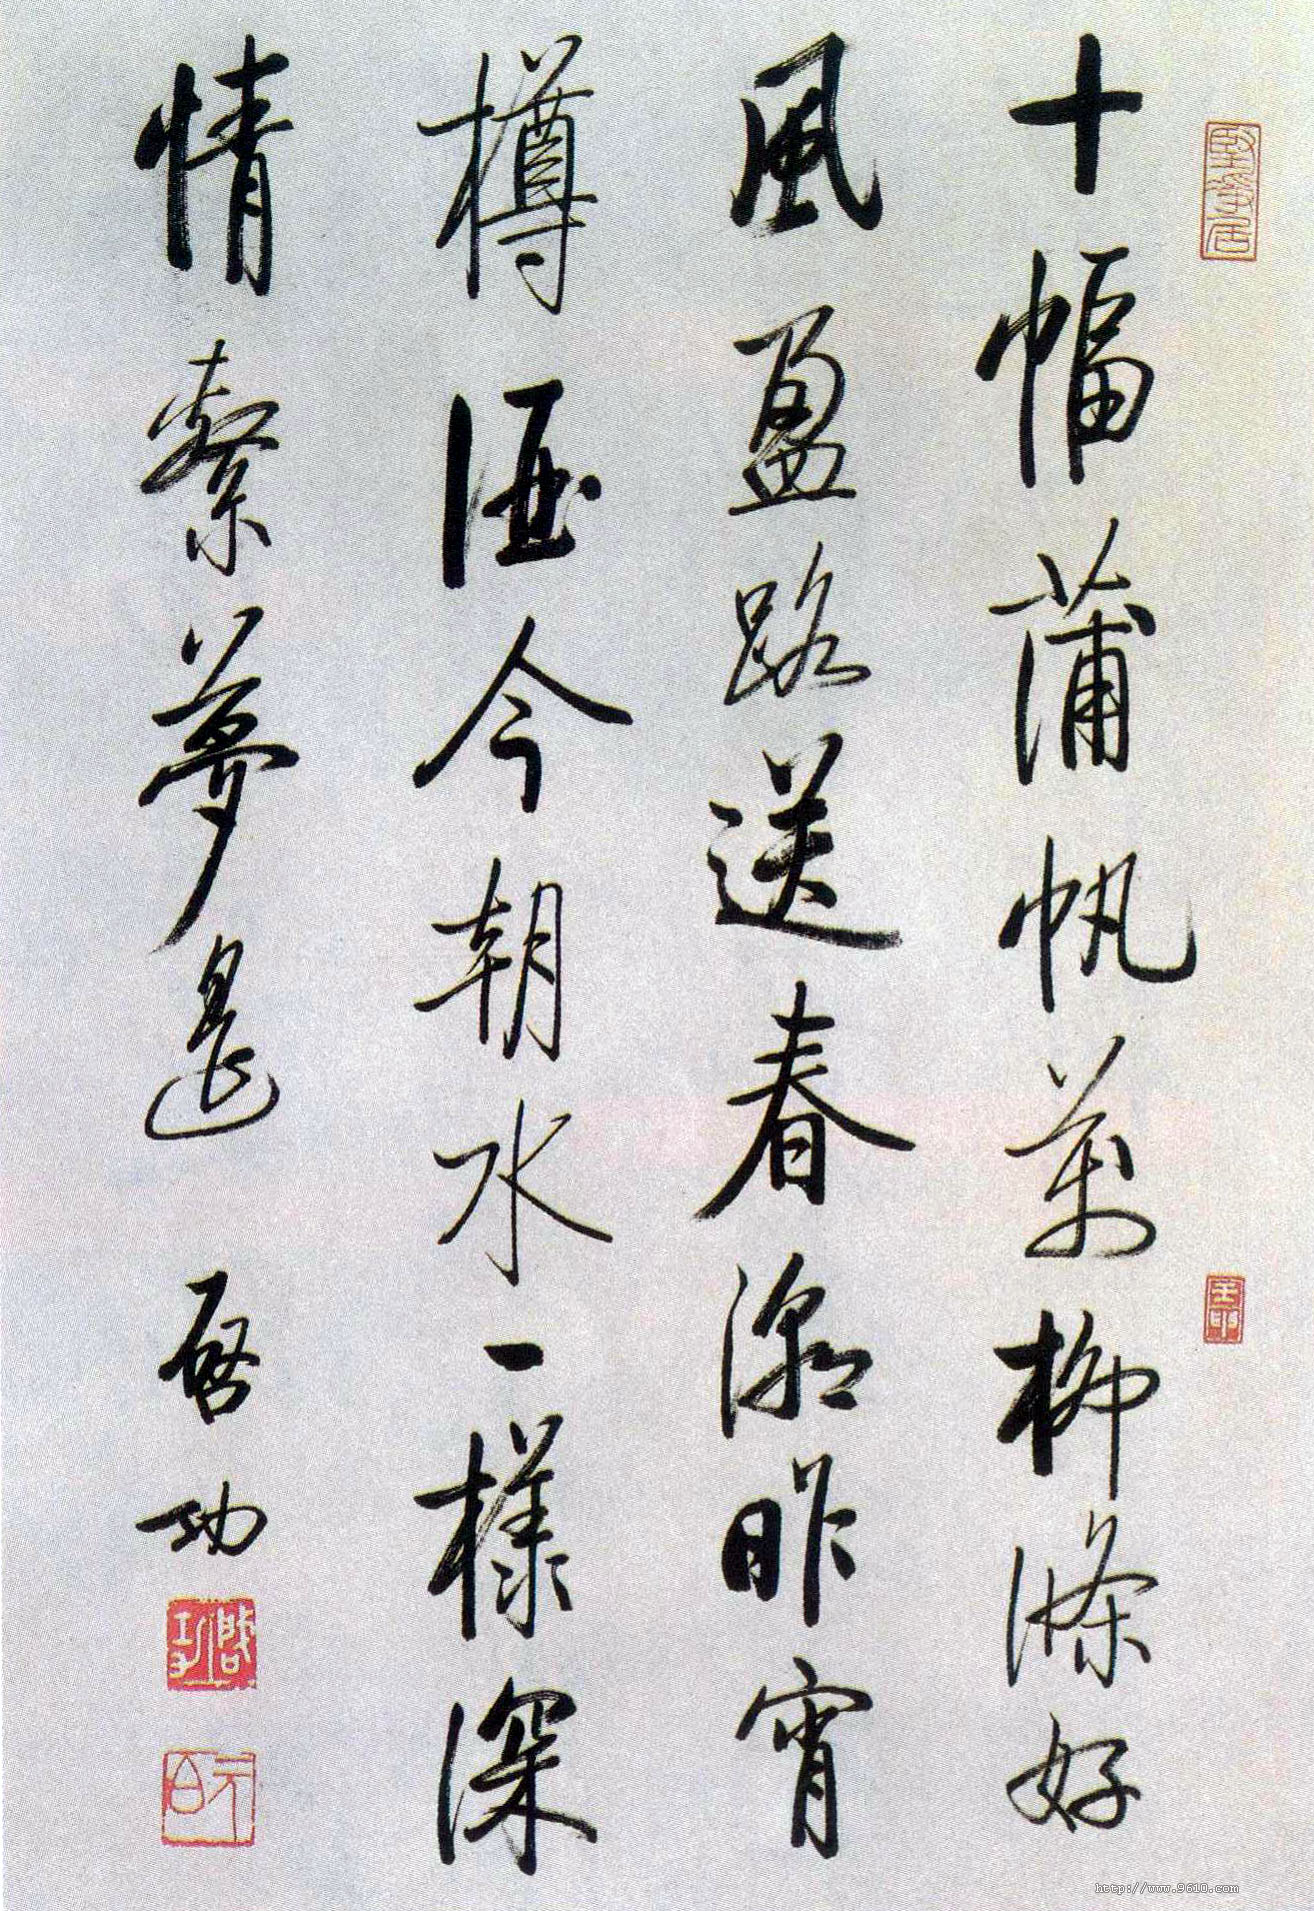 十幅蒲帆萬柳條好
風盈路送春潮昨宵
樽酒今朝水一樣深
情繫夢遙 啓功
啓功
元白
http://www.9610.com